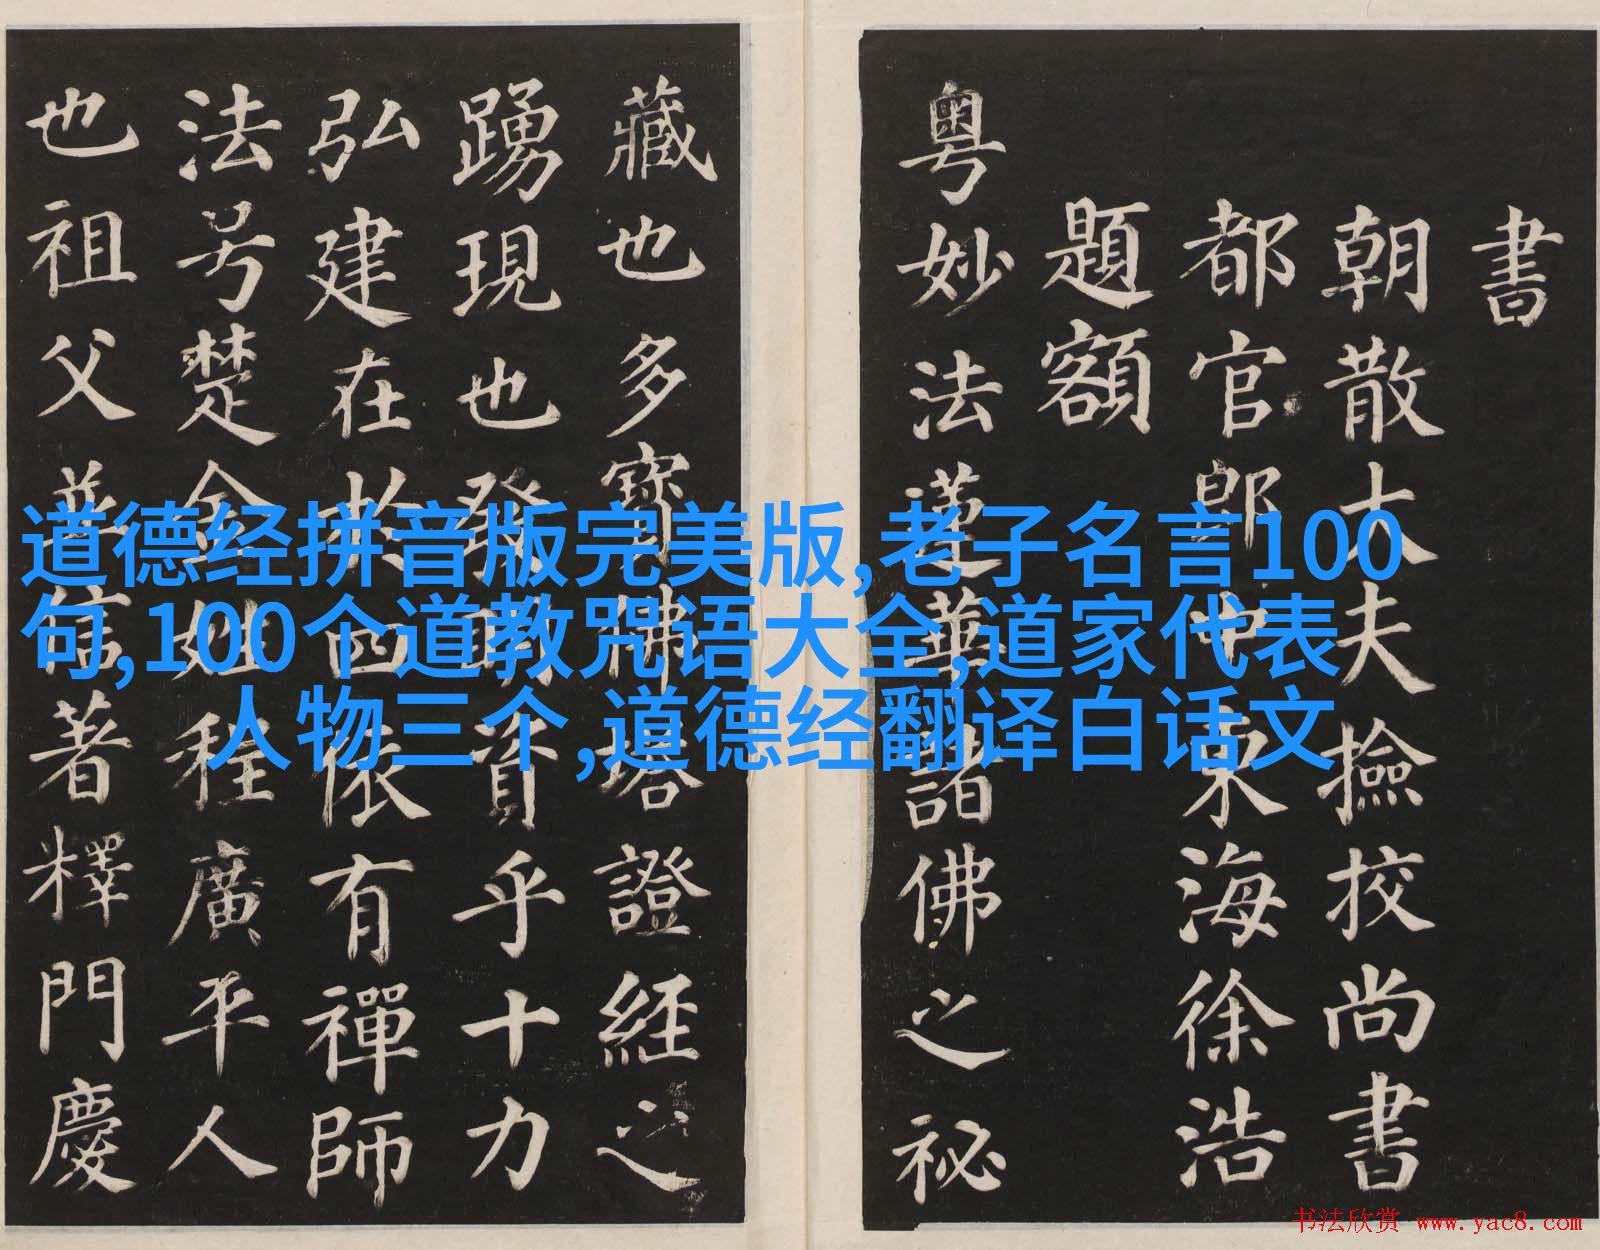 書
朝散大夫撿挍尚書
都官郎中東海徐浩
題額
粤妙法蓮華諸佛之祕
藏也多寶佛塔證經之
踴現也發明資乎十力
弘建在於四依有禪師
法号楚金姓程廣平人
也祖父並信著釋門慶
道德经拼音版完美版,老子名言100
句,100个道教咒语大全,道家代表
人物三个,道德经翻译白话文
书法欣赏 www.yac8.com